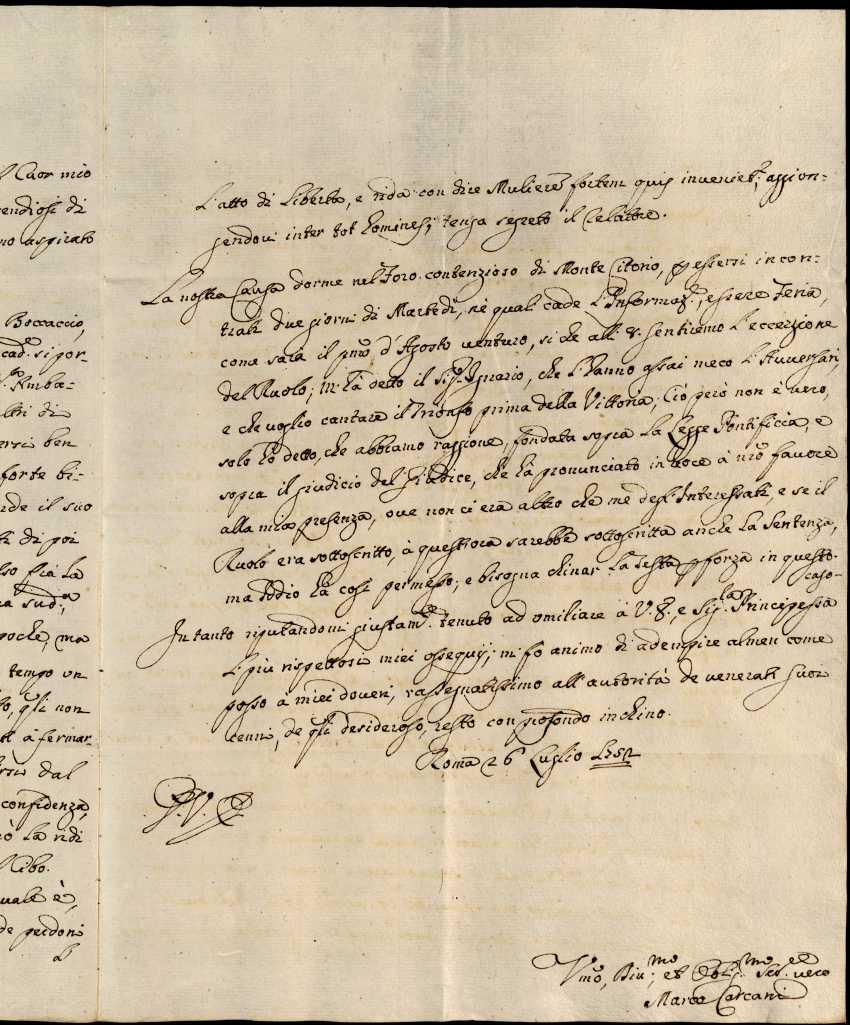 l Cuor mio
endiosi di
no aspirato
Boccaccio,
cad. si por-
Amba-
ltri di
ersi ben
forte bi-
de il suo
ti di poi
lso fià la
a sud.ª
poche, ma
tempo un
to, q'li non
tt à fermar-
ersi dal
confidenza,
ò la ridi
Cibo.
uale è,
de perdoni
L'
L'atto di Liberto, e rida con dire Mulierē fortem quis inveniet; aggion-
gendovi inter tot homines; tenga segreto il Celattre.
La nostra Causa dorme nel Foro contenzioso di Monte Citorio, p essersi incon-
trati due giorni di Martedì, nè quali cade l'Informaz.e, essere Feria,
come sarà il pmo d'Agosto venturo, si che all' 8. sentiremo l'eccezzione
del Ruolo; m'hà detto il Sig.r Ignario, che l'hanno assai meco l'Avversari,
e che voglio cantare il Trionfo prima della Vittoria; Ciò però non è vero,
solo hò detto, che abbiamo raggione, fondata sopra la Legge Pontificia, e
sopra il giudicio del Giudice, che hà pronunciato in voce à nrõ favore
alla mia presenza, ove non ci era altro che me degl'Interessati, e se il
Ruolo era sottoscritto, à quest'ora sarebbe sottoscritta anche la Sentenza,
ma Iddio hà così permesso; e bisogna chinar la testa p forza in questo
caso-
In tanto riputandomi giustam.e tenuto ad umiliare à V.E., e Sig.ra Principessa
l più rispettosi miei ossequj; mi fo animo di adempire almen come
posso a miei doveri; rassegnatissimo all'autorità de venerati suoi
cenni, de q'li desideroso, resto con profondo inchino.
Roma 26 Luglio 1752
P.V.E
Vmõ, Divmo; et Oblmo Ser. vero
Marco Carcani